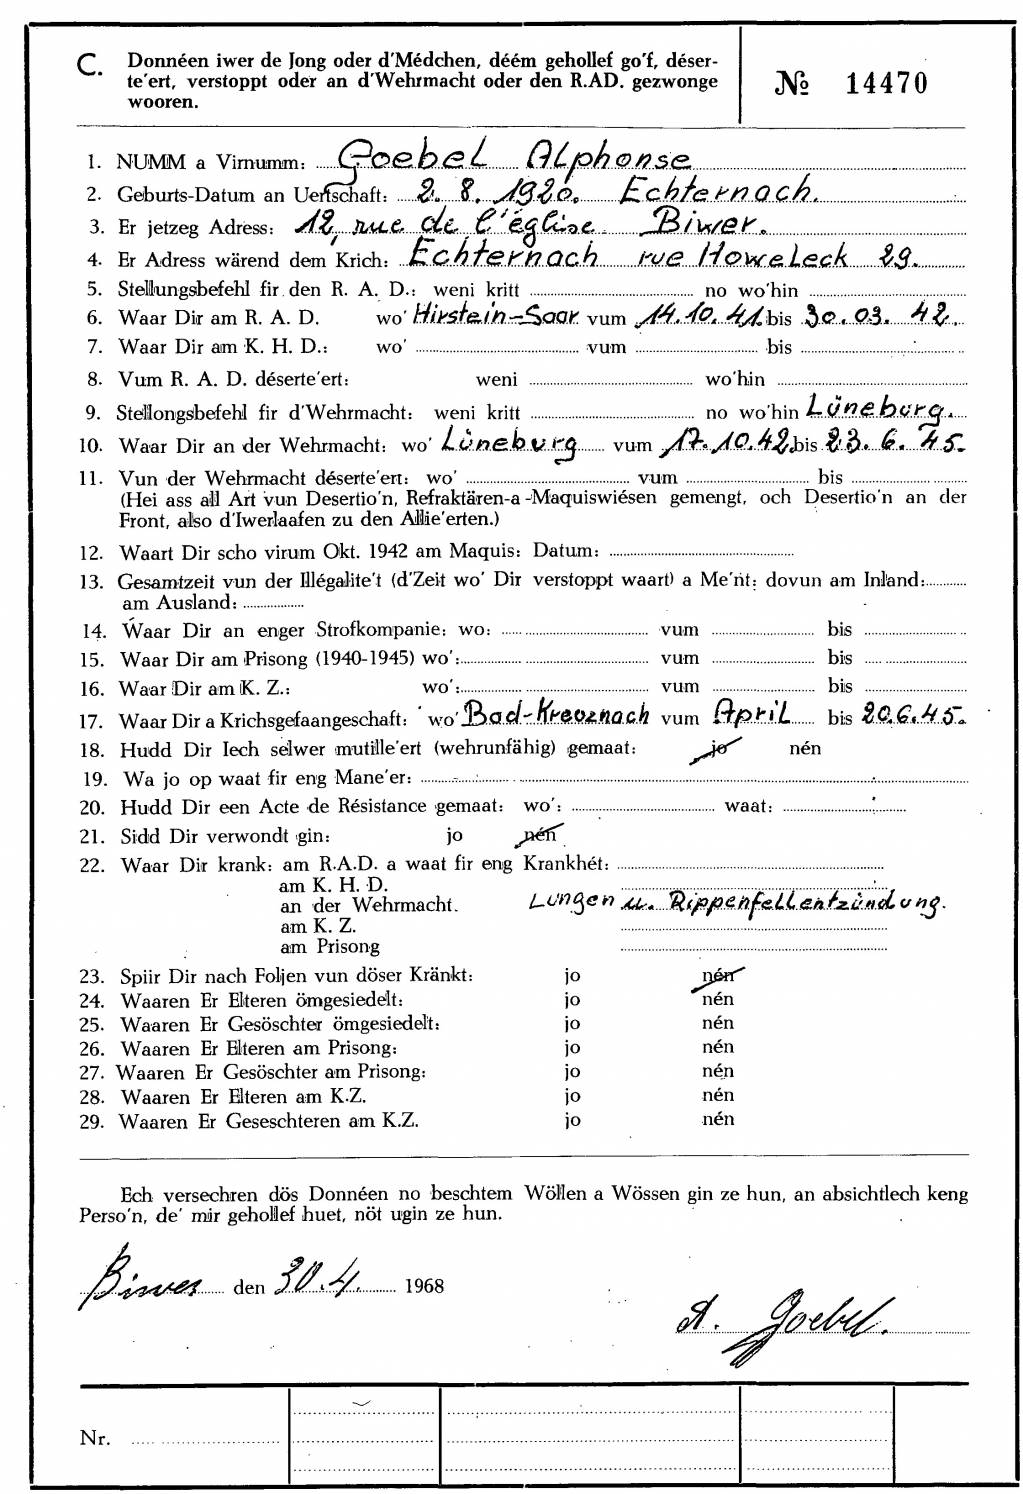 C. Donnéen iwer de Jong oder d'Médchen, déém gehollef go'f, déser-
te'ert, verstoppt oder an d'Wehrmacht oder den R.AD. gezwonge
wooren.
№ 14470
1. NUMM a Virnumm: Goebel Alphonse
2. Geburts-Datum an Uertschaft: 2. 8. 1920. Echternach.
3. Er jetzeg Adress: 12, rue de l'église Biwer.
4. Er Adress wärend dem Krich: Echternach rue Howeleck 29.
5. Stellungsbefehl fir den R. A. D.: weni kritt no wo'hin
6. Waar Dir am R. A. D. wo' Hirstein-Saar vum 14.10.41. bis 30.03. 42.
7. Waar Dir am K. H. D.: wo' vum bis
8. Vum R. A. D. déserte'ert: weni wo'hin
9. Stellongsbefehl fir d'Wehrmacht: weni kritt no wo'hin Lüneburg.
10. Waar Dir an der Wehrmacht: wo' Lüneburg vum 17.10.42. bis 23. 6. 45.
11. Vun der Wehrmacht déserte'ert: wo' vum bis
(Hei ass all Art vun Desertio'n, Refraktären-a-Maquiswiésen gemengt, och Desertio'n an der
Front, also d'Iwerlaafen zu den Allie'erten.)
12. Waart Dir scho virum Okt. 1942 am Maquis: Datum:
13. Gesamtzeit vun der Illégalite't (d'Zeit wo' Dir verstoppt waart) a Me'nt: dovun am Inland:
am Ausland:
14. Waar Dir an enger Strofkompanie: wo: vum bis
15. Waar Dir am Prisong (1940-1945) wo': vum bis
16. Waar Dir am K. Z.: wo': vum bis
17. Waar Dir a Krichsgefaangeschaft: wo' Bad-Kreuznach vum April bis 20.6.45.
18. Hudd Dir Iech selwer mutille'ert (wehrunfähig) gemaat: jo nén
19. Wa jo op waat fir eng Mane'er:
20. Hudd Dir een Acte de Résistance gemaat: wo': waat:
21. Sidd Dir verwondt gin: jo nén
22. Waar Dir krank: am R.A.D. a waat fir eng Krankhét:
am K. H. D.
an der Wehrmacht. Lungen u. Rippenfellentzündung.
am K. Z.
am Prisong
23. Spiir Dir nach Foljen vun döser Kränkt: jo nén
24. Waaren Er Elteren ömgesiedelt: jo nén
25. Waaren Er Gesöschter ömgesiedelt: jo nén
26. Waaren Er Elteren am Prisong: jo nén
27. Waaren Er Gesöschter am Prisong: jo nén
28. Waaren Er Elteren am K.Z. jo nén
29. Waaren Er Geseschteren am K.Z. jo nén
Ech versechren dös Donnéen no beschtem Wöllen a Wössen gin ze hun, an absichtlech keng
Perso'n, de' mir gehollef huet, nöt ugin ze hun.
Biwer den 30.4. 1968
A. Goebel.
Nr.